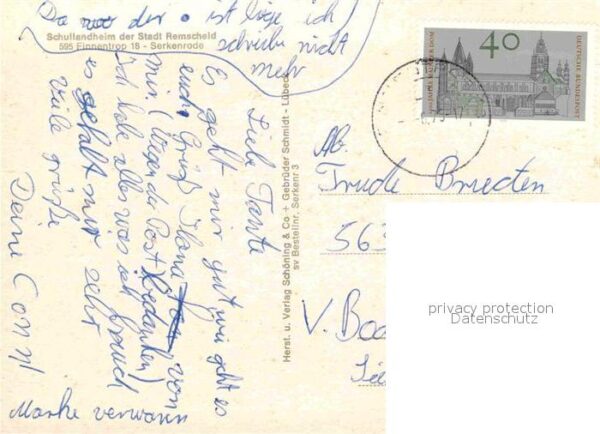 Da der ist liege ich
schreibe nicht
mehr
Schullandheim der Stadt Remscheid
595 Finnentrop 18 - Serkenrode
Liebe Tante
Es geht mir gut wie geht es
euch Gruß Ilona von
mir. (Wegen der Post bedanken)
Ich habe alles was ich brauch
es gefällt mir sehr
viele grüße
Deine Conni
Marke verwaren
Herst. u. Verlag Schöning & Co + Gebrüder Schmidt - Lübeck
sv Bestellnr. Serkenr 3
40
DEUTSCHE BUNDESPOST
An.
Trude
563
V. Boe
privacy protection
Datenschutz